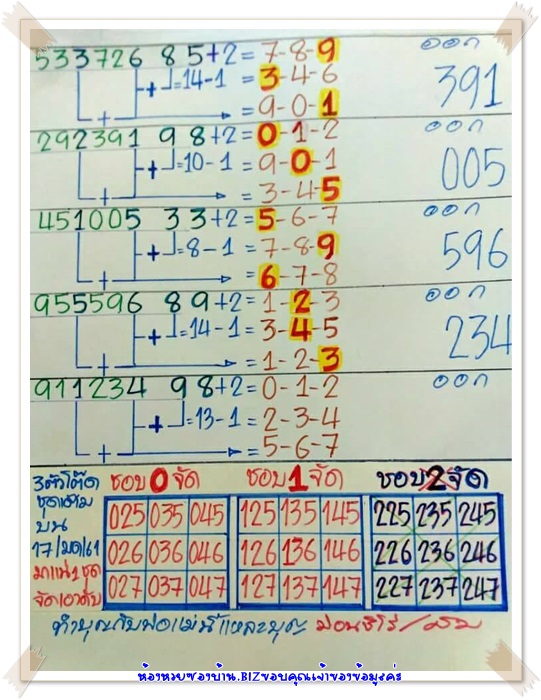 533726 85+2=7-8-9 ออก
+=14-1=3-4-6 391
+=9-0-1
292391 98+2=0-1-2 ออก
+=10-1=9-0-1 005
+=3-4-5
451005 33+2=5-6-7 ออก
+=8-1=7-8-9 596
+=6-7-8
955596 89+2=1-2-3 ออก
+=14-1=3-4-5 234
+=1-2-3
911234 98+2=0-1-2 ออก
+=13-1=2-3-4
+=5-6-7
3ตัวโต๊ด ชอบ 0 จัด ชอบ 1 จัด ชอบ 2 จัด
ชุดเดิม 025 035 045 125 135 145 225 235 245
บน
17/มค/61 026 036 046 126 136 146 226 236 246
มาแน่ 1 ชุด 027 037 047 127 137 147 227 237 247
จัดเอาคับ
ทำบุญกับพ่อแม่นี่แหละบุญ
ห้องหวยซองบ้าน.BIZขอบคุณเจ้าของข้อมูลค่ะ